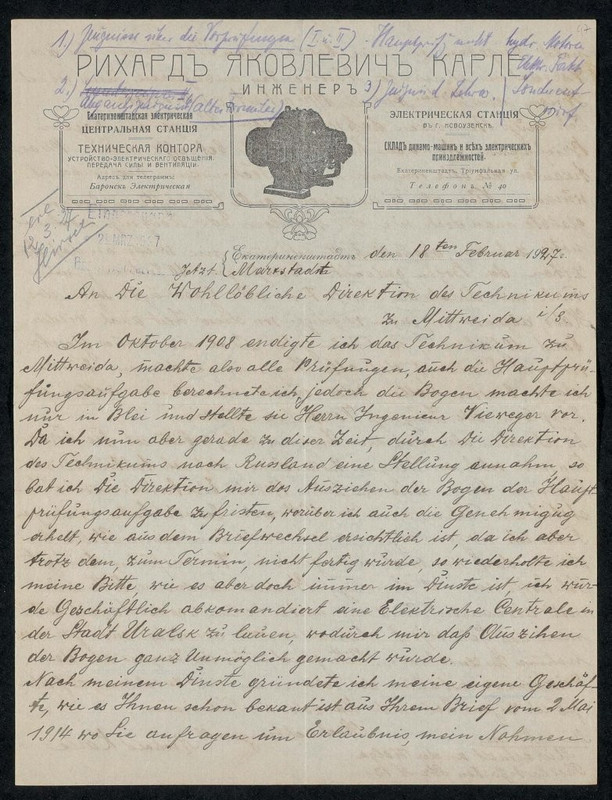 1.) Zeugnisse über die Vorprüfungen (I u. II) - Hauptprüf
РИХАРДЪ ЯКОВЛЕВИЧЪ КАРЛЕ
2.)
ИНЖЕНЕРЪ
3)
Екатериненштадтская электрическая
ЦЕНТРАЛЬНАЯ СТАНЦІЯ
ТЕХНИЧЕСКАЯ КОНТОРА
УСТРОЙСТВО-ЭЛЕКТРИЧЕСКАГО ОСВѢЩЕНІЯ,
ПЕРЕДАЧА СИЛЫ И ВЕНТИЛЯЦІИ.
Адресъ для телеграммъ:
Баронскъ Электрическая
ЭЛЕКТРИЧЕСКАЯ СТАНЦІЯ
ВЪ Г. НОВОУЗЕНСКѢ.
СКЛАДЪ динамо-машинъ и всѣхъ электрическихъ
принадлежностей.
Екатериненштадтъ, Тріумфальная ул.
Телефонъ № 40
Екатериненштадтъ den 18ten Februar 1927 г.
Jetzt { Marxstadt
An Die Wohllöbliche Direktion des Technikums
zu Mittweida i/S.
Im Oktober 1908 endigte ich das Technikum zu
Mittweida, machte also alle Prüfungen, auch die Hauptprü-
fungsaufgabe berechnete ich, jedoch die Bogen machte ich
nur in Blei und stellte sie Herrn Ingenieur Vieweger vor.
Da ich nun aber gerade zu diser Zeit, durch Die Direktion
des Technikums nach Russland eine Stellung annahm, so
bat ich Die Direktion mir das Ausziehen der Bogen der Haupt
prüfungsaufgabe zu fristen, worüber ich auch die Genehmigug
erhelt, wie aus dem Briefwechsel ersichtlich ist, da ich aber
trotz dem, zum Termin, nicht fertig wurde, so wiederholte ich
meine Bitte, wie es aber doch immer im Dinste ist ich wur-
de Geschäftlich abkomandiert eine Elektrische Centrale in
der Stadt Uralsk zu bauen, wodurch mir daß Auszihen
der Bogen ganz Unmöglich gemacht wurde.
Nach meinem Dinste gründete ich meine eigene Geschäf-
te, wie es Ihnen schon bekant ist aus Ihrem Brief vom 2 Mai
1914 wo Sie anfragen um Erlaubnis, mein Nahmen